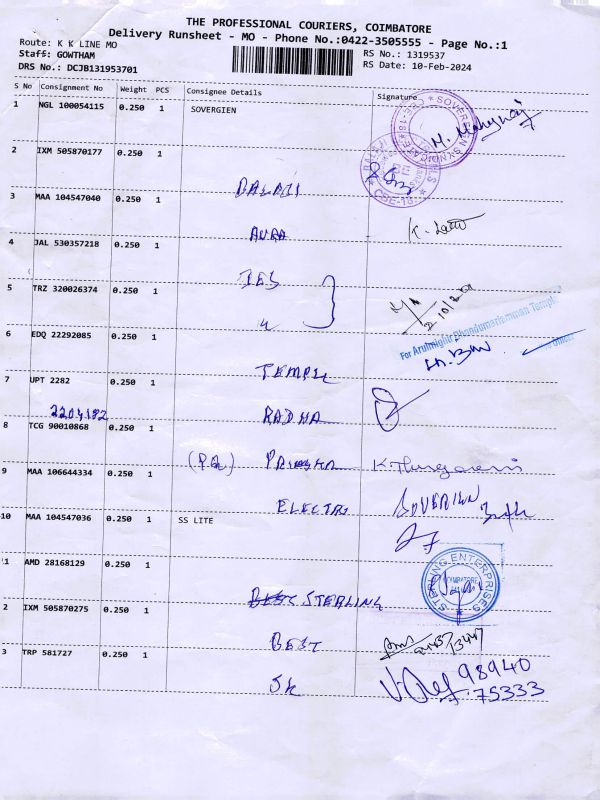 THE PROFESSIONAL COURIERS, COIMBATORE
Delivery Runsheet - MO - Phone No.:0422-3505555 - Page No.:1
Route: K K LINE MO
RS No.: 1319537
Staff: GOWTHAM
RS Date: 10-Feb-2024
DRS No.: DCJB131953701
S No Consignment No Weight PCS Consignee Details Signature
1 NGL 100054115 0.250 1 SOVERGIEN
2 IXM 505870177 0.250 1
BALAJI
3 MAA 104547040 0.250 1
AURA
4 JAL 530357218 0.250 1
JES
5 TRZ 320026374 0.250 1
"
For Arulmighu Dhandumariamman Temple
6 EDQ 22292085 0.250 1
TEMPLE
7 UPT 2282 0.250 1
2204182
RADHA
8 TCG 90010868 0.250 1
(P.R)
9 MAA 106644334 0.250 1
ELECTRI
SOVERIEN
10 MAA 104547036 0.250 1 SS LITE
STERLING ENTERPRISES
COIMBATORE
1 AMD 28168129 0.250 1
BEST STERLING
2 IXM 505870275 0.250 1
BEST
3 TRP 581727 0.250 1
SK
98940
75333